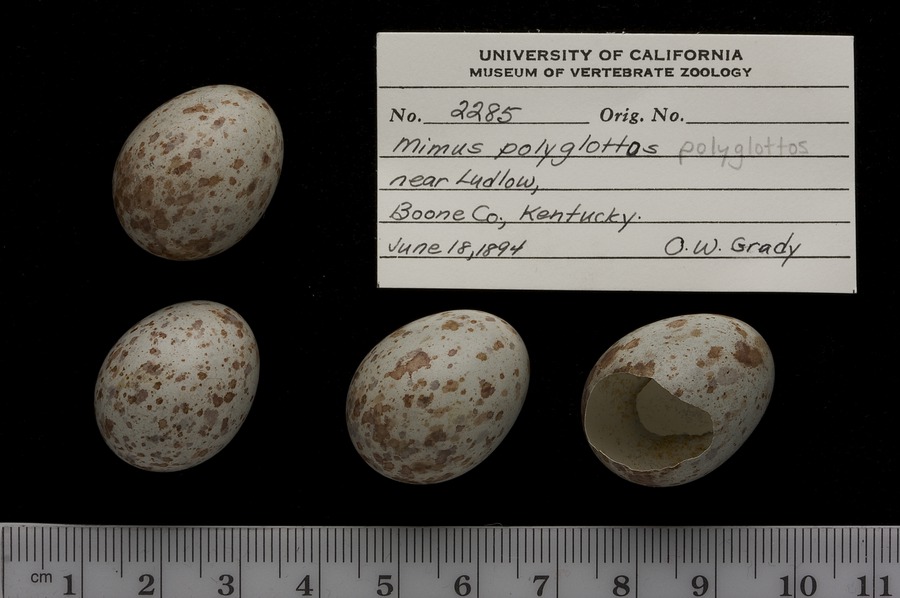 UNIVERSITY OF CALIFORNIA
MUSEUM OF VERTEBRATE ZOOLOGY
No. 2285 Orig. No.
Mimus polyglottos polyglottos
near Ludlow,
Boone Co., Kentucky.
June 18, 1894 O.W. Grady
cm 1 2 3 4 5 6 7 8 9 10 11